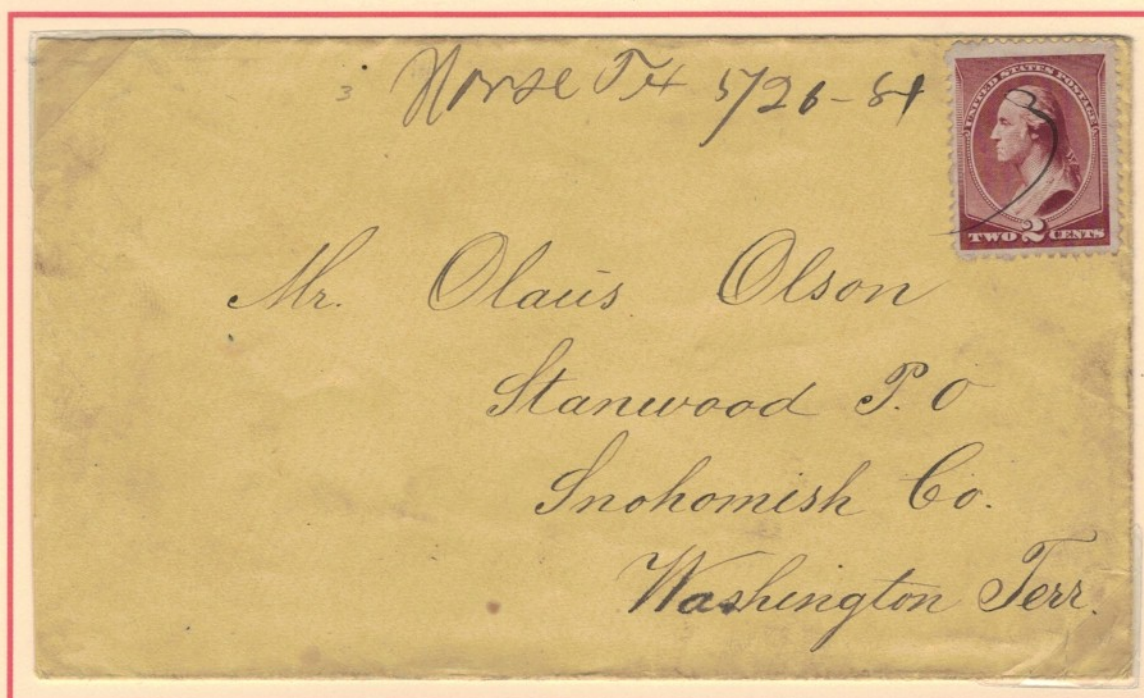 3
Norse Tex 5/26-84
UNITED STATES POSTAGE
TWO 2 CENTS
Mr. Olaus Olson
Stanwood P.O
Snohomish Co.
Washington Terr.